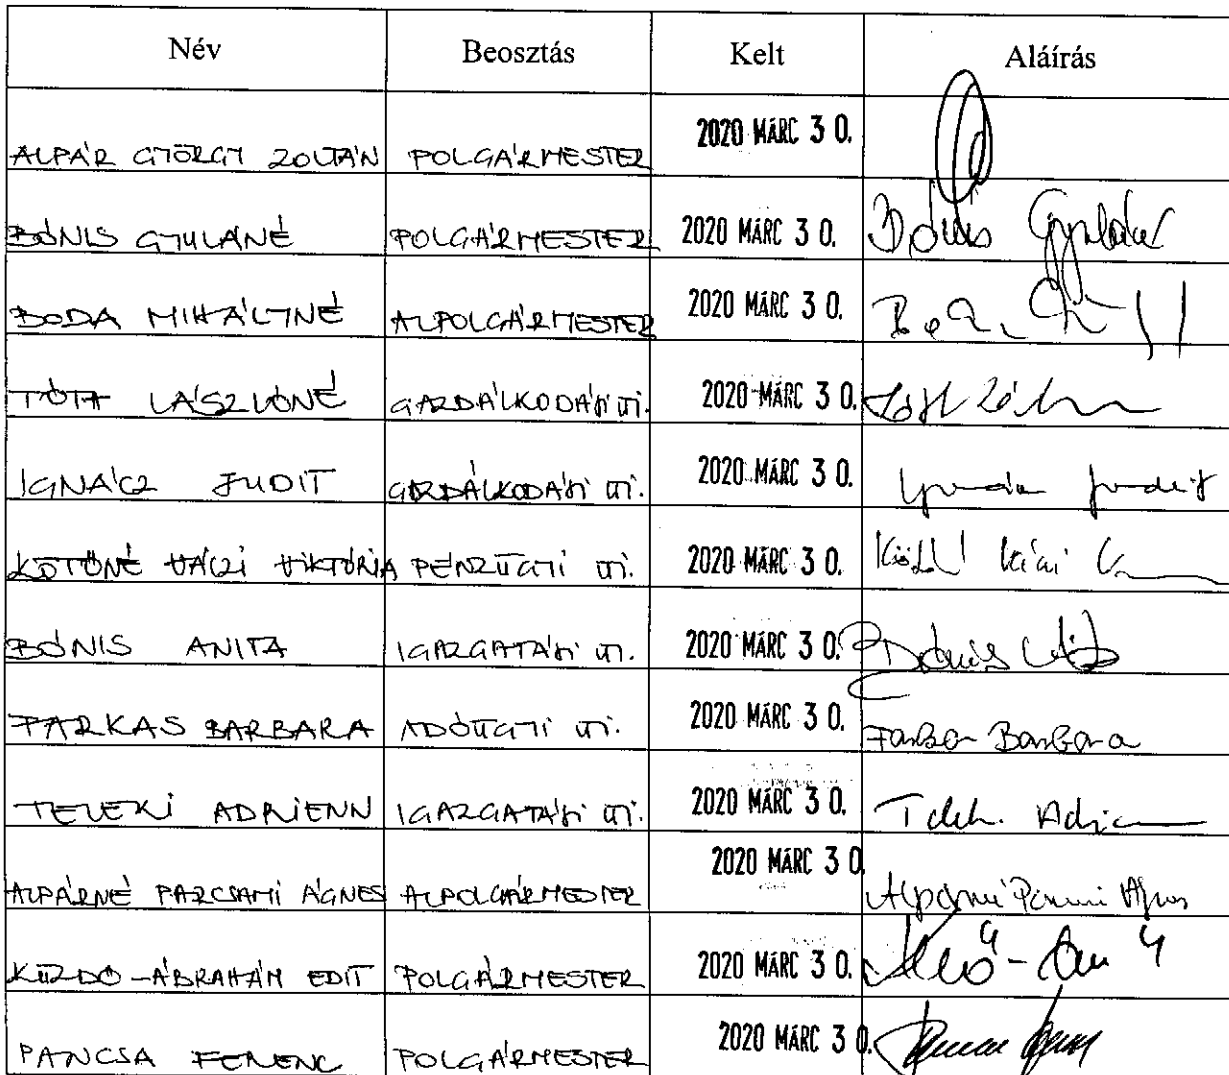 Név Beosztás Kelt Aláírás
ALPÁR GYÖRGY ZOLTÁN POLGÁRMESTER 2020 MÁRC 30.
BÓNIS GYULÁNÉ POLGÁRMESTER 2020 MÁRC 30. Bónis Gyuláné
BODA MIHÁLYNÉ ALPOLGÁRMESTER 2020 MÁRC 30.
TÓTH LÁSZLÓNÉ GAZDÁLKODÁSI ÜI. 2020 MÁRC 30.
IGNÁCZ JUDIT GAZDÁLKODÁSI ÜI. 2020 MÁRC 30. Judit
VÁCZI VIKTÓRIA PÉNZÜGYI ÜI. 2020 MÁRC 30.
BÓNIS ANITA IGAZGATÁSI ÜI. 2020 MÁRC 30. Bónis Anita
FARKAS BARBARA ADÓÜGYI ÜI. 2020 MÁRC 30. Farkas Barbara
TELEKI ADRIENN IGAZGATÁSI ÜI. 2020 MÁRC 30. Teleki Adrienn
ALPÁRNÉ ÁGNES ALPOLGÁRMESTER 2020 MÁRC 30. Alpárné Ágnes
KÜZDŐ-ÁBRAHÁM EDIT POLGÁRMESTER 2020 MÁRC 30.
PANCSA FERENC POLGÁRMESTER 2020 MÁRC 30.